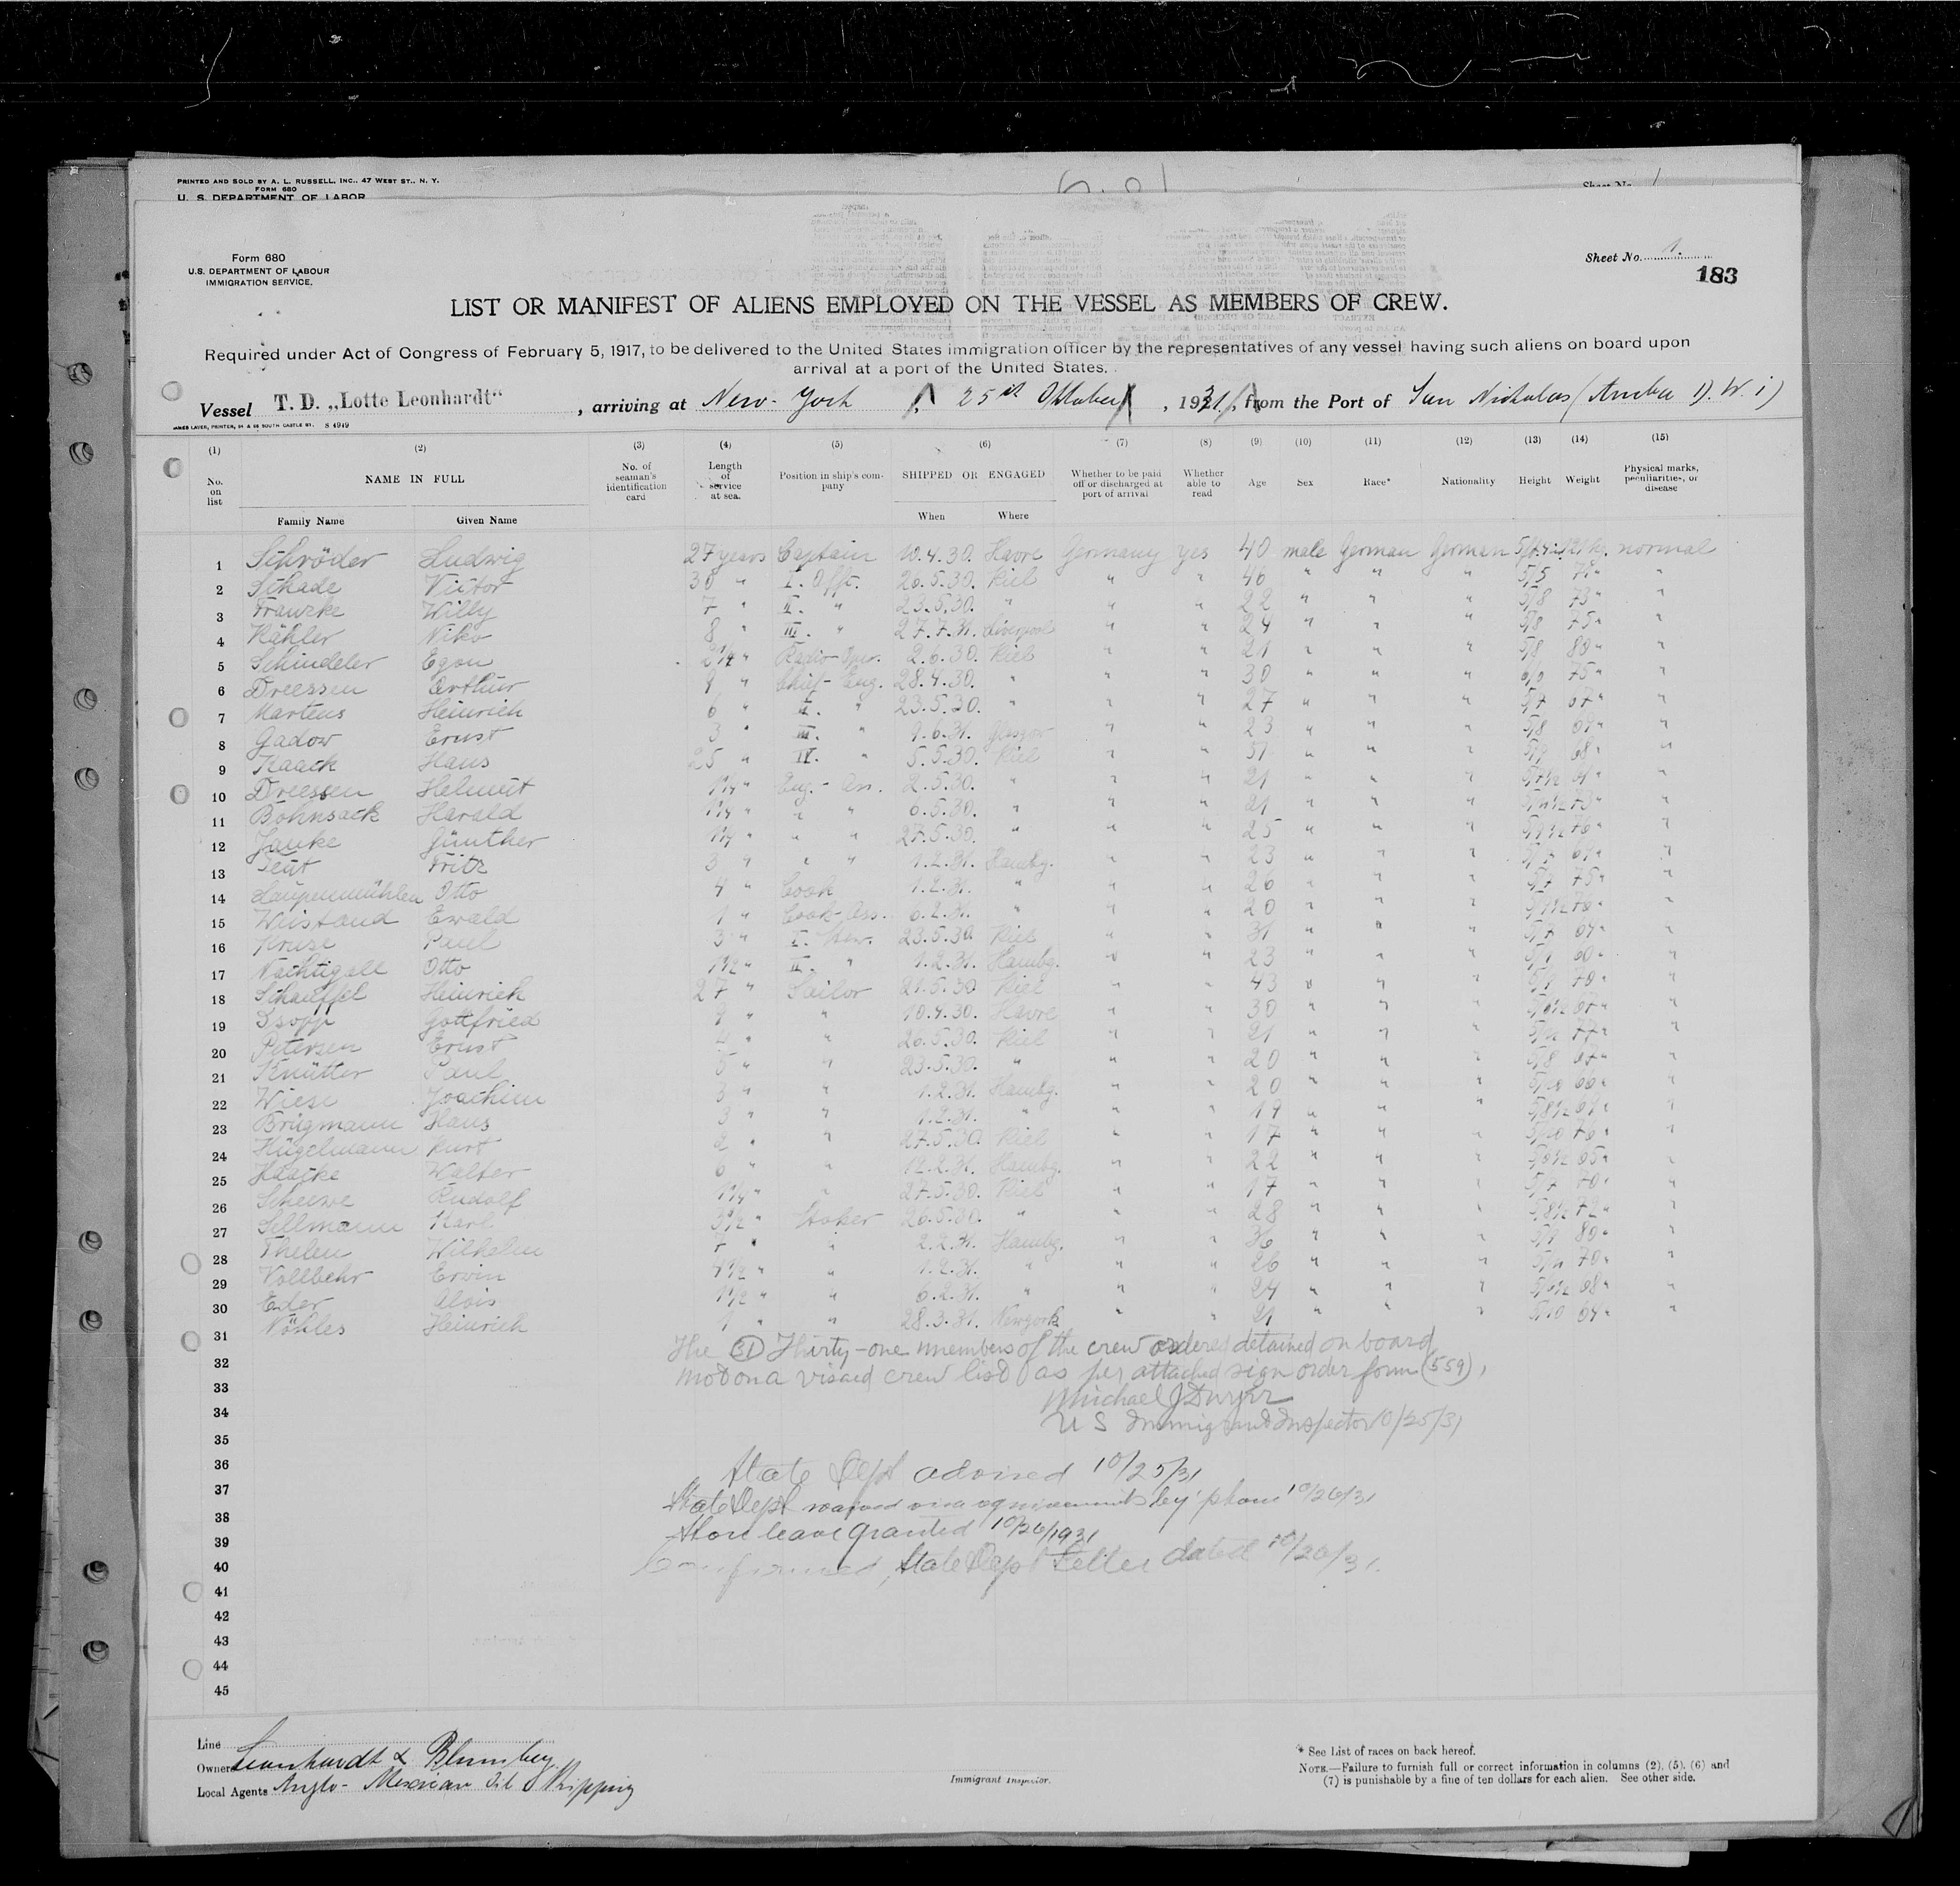 PRINTED AND SOLD BY A. L. RUSSELL, INC., 47 WEST ST., N. Y.
FORM 680
U. S. DEPARTMENT OF LABOR
Form 680
U.S. DEPARTMENT OF LABOUR
IMMIGRATION SERVICE.
Sheet No. 1.
183
LIST OR MANIFEST OF ALIENS EMPLOYED ON THE VESSEL AS MEMBERS OF CREW.
Required under Act of Congress of February 5, 1917, to be delivered to the United States immigration officer by the representatives of any vessel having such aliens on board upon
arrival at a port of the United States.
Vessel T. D. „Lotte Leonhardt“, arriving at New-York, 25 October, 1931, from the Port of San Nicholas (Aruba D. W. i)
(1) (2) (3) (4) (5) (6) (7) (8) (9) (10) (11) (12) (13) (14) (15)
No. on list NAME IN FULL No. of seaman's identification card Length of service at sea. Position in ship's company SHIPPED OR ENGAGED Whether to be paid off or discharged at port of arrival Whether able to read Age Sex Race* Nationality Height Weight Physical marks, peculiarities, or disease
Family Name Given Name When Where
1 Schröder Ludwig 27 years Captain 10.4.30. Havre Germany yes 40 male German German normal
2 Schade Victor 30 " I. Offc. 26.5.30. Kiel " " 46 " " " 5/5 "
3 Franzke Willy 7 " II. " 23.5.30. " " " 22 " " " 5/8 73 " "
4 Kähler Niko 8 " III. " 27.7.31. Liverpool " " 24 " " " 5/8 75 " "
5 Schindeler Egon 2 1/4 " Radio-Oper. 2.6.30. Kiel " " 21 " " " 5/8 "
6 Dreessen Arthur 9 " Chief-Eng. 28.4.30. " " " 30 " " " 6/0 75 " "
7 Martens Heinrich 6 " II. " 23.5.30. " " " 27 " " " 5/7 67 " "
8 Gadow Ernst 3 " III. " 9.6.31. Glasgow " " 23 " " " 5/8 "
9 Kaack Hans 25 " IV. " 5.5.30. Kiel " " " " " 5/9 68 " "
10 Dreessen Helmut 1 1/4 " Eng.-Ass. 2.5.30. " " " 21 " " " "
11 Bohnsack Harald 1 1/4 " " " 6.5.30. " " " 21 " " " "
12 Janke Günther 1 1/4 " " " 27.5.30. " " " 25 " " " "
13 Teut Fritz 3 " " " 1.2.31. Hambg. " " 23 " " " 5/7 "
14 Laupenmühlen Otto 4 " Cook 1.2.31. " " " 26 " " " 5/7 75 " "
15 Weistand Ewald 1 " Cook-Ass. 6.2.31. " " " 20 " " " "
16 Kruse Paul 3 " I. Stew. 23.5.30 Kiel " " 31 " " " 5/7 "
17 Nachtigall Otto 1 1/2 " II. " 1.2.31. Hambg. " " 23 " " " "
18 Schaeffel Heinrich 27 " Sailor 21.5.30 Kiel " " 43 " " " 5/9 70 " "
19 Gottfried 9 " " 10.4.30. Havre " " 30 " " " "
20 Petersen Ernst " " 26.5.30. Kiel " " 21 " " " 77 " "
21 Knütter Paul 5 " " 23.5.30. " " " 20 " " " 5/8 67 " "
22 Wiese Joachim 3 " " 1.2.31. Hambg. " " 20 " " " 5/10 "
23 Brügmann Hans 3 " " 1.2.31. " " " 19 " " " 5/8 1/2 "
24 Hügelmann Kurt 2 " " 27.5.30. Kiel " " 17 " " " 5/10 76 " "
25 Haacke Walter 6 " " 12.2.31. Hambg. " " 22 " " " "
26 Scheewe Rudolf 1 1/4 " " 27.5.30. Kiel " " 17 " " " 5/7 70 " "
27 Sellmann Karl 3 1/2 " Stoker 26.5.30. " " " 28 " " " 5/8 1/2 72 " "
28 Thelen Wilhelm 7 " " 2.2.31. Hambg. " " 36 " " " 5/9 80 " "
29 Vollbehr Ervin 4 1/2 " " 1.2.31. " " " 26 " " " 70 " "
30 Eder Alois 1 1/2 " " 6.2.31. " " " 24 " " " 68 " "
31 Nöhles Heinrich 1 " " 28.3.31. Newyork " " 21 " " " 5/10 "
The (31) Thirty-one members of the crew ordered detained on board
not on a visaed crew list as per attached sign order form (559),
Michael J Dwyer
U S Immigrant Inspector 10/25/31
State Dept advised 10/25/31
State Dept waived visa requirements by phone 10/26/31
Shore leave granted 10/26/1931
Confirmed, State Dept Letter dated 10/26/31.
32
33
34
35
36
37
38
39
40
41
42
43
44
45
Line
Owner Leonhardt & Blumberg
Local Agents Anglo-Mexican Oil Shipping
Immigrant Inspector.
* See List of races on back hereof.
NOTE.—Failure to furnish full or correct information in columns (2), (5), (6) and
(7) is punishable by a fine of ten dollars for each alien. See other side.